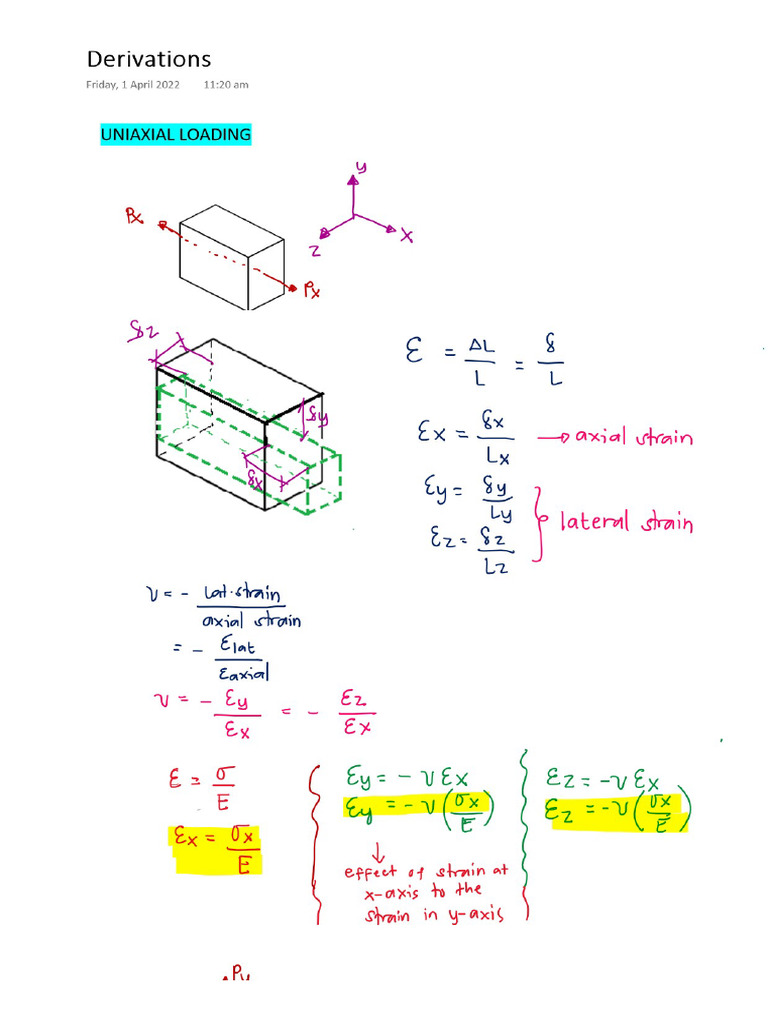 Derivations
Friday, 1 April 2022 11:20 am
UNIAXIAL LOADING
y
x
z
Px
Px
δz
δy
δx
ε = ΔL/L = δ/L
εx = δx/Lx → axial strain
εy = δy/Ly
εz = δz/Lz
} lateral strain
ν = - lat.strain/axial strain
= - εlat/εaxial
ν = - εy/εx = - εz/εx
ε = σ/E
εx = σx/E
εy = - ν εx
εy = - ν (σx/E)
↓
effect of strain at
x-axis to the
strain in y-axis
εz = -ν εx
εz = -ν (σx/E)